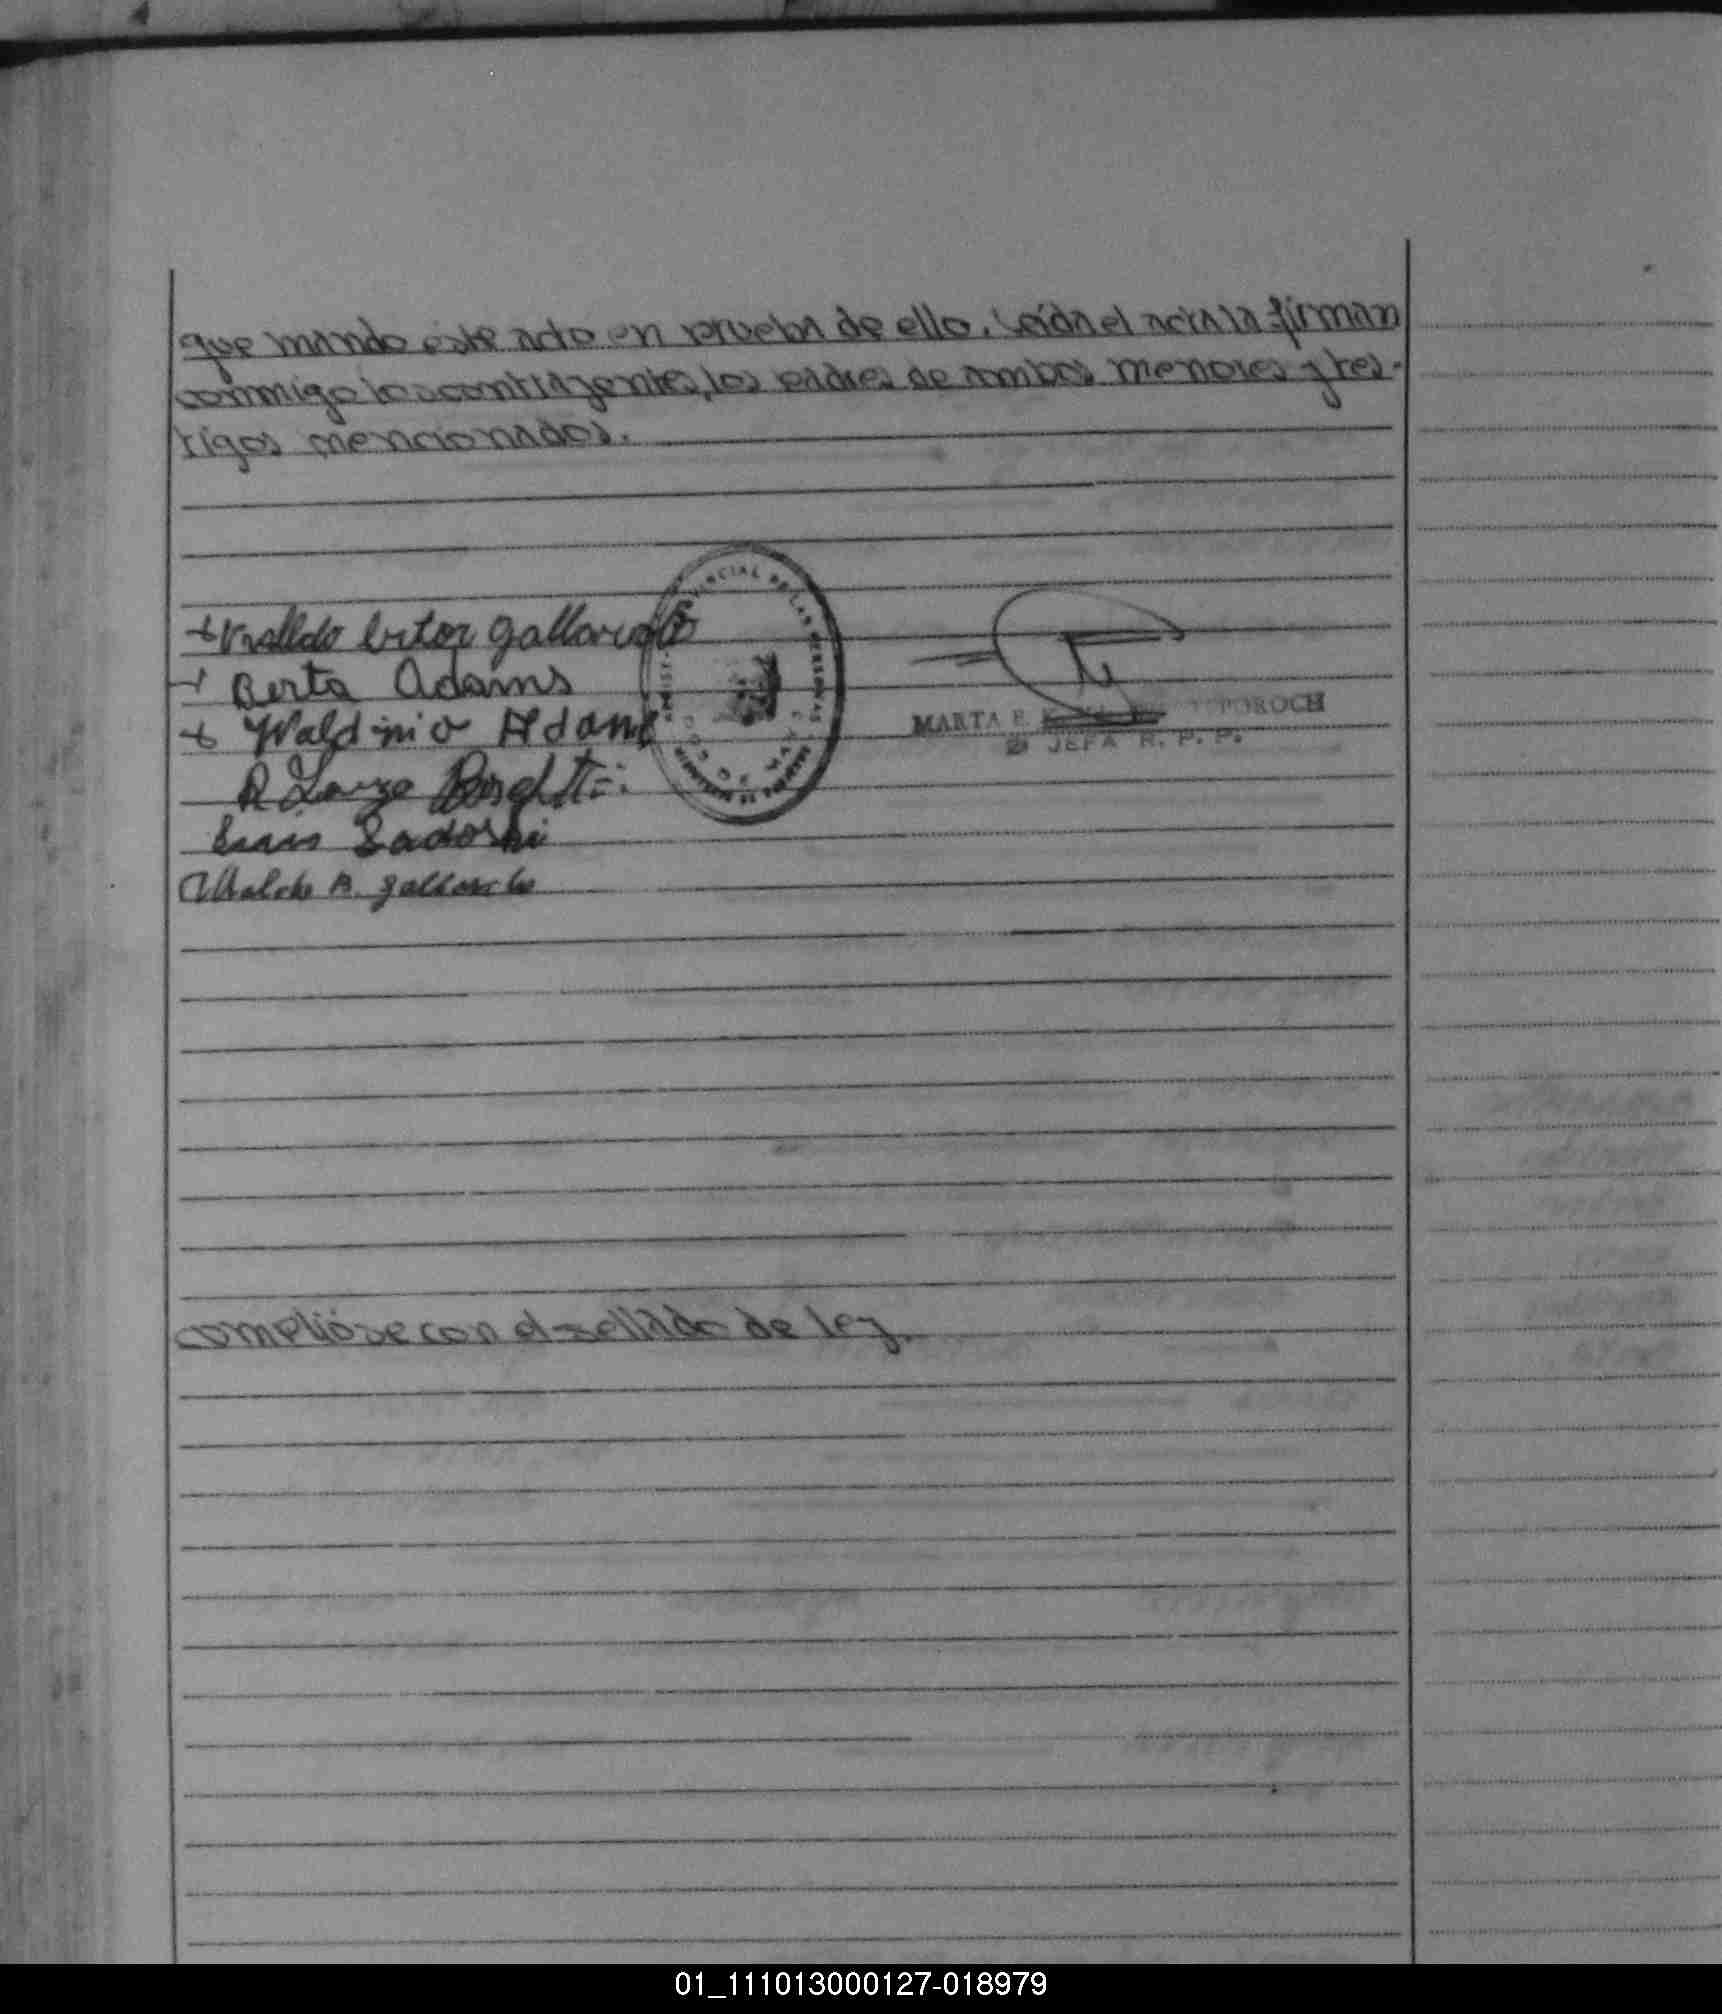 que mando este acto en prueba de ello. Leída el acta la firman
conmigo los contrayentes, los padres de ambos menores y tes-
tigos mencionados.
gallardo
Berta Adams
Waldinio Adam
Sadoski
A. gallardo
PROVINCIAL DE LAS PERSONAS
MARTA E. TOPOROCH
JEFA R. P. P.
complióse con el sellado de ley.
01_111013000127-018979